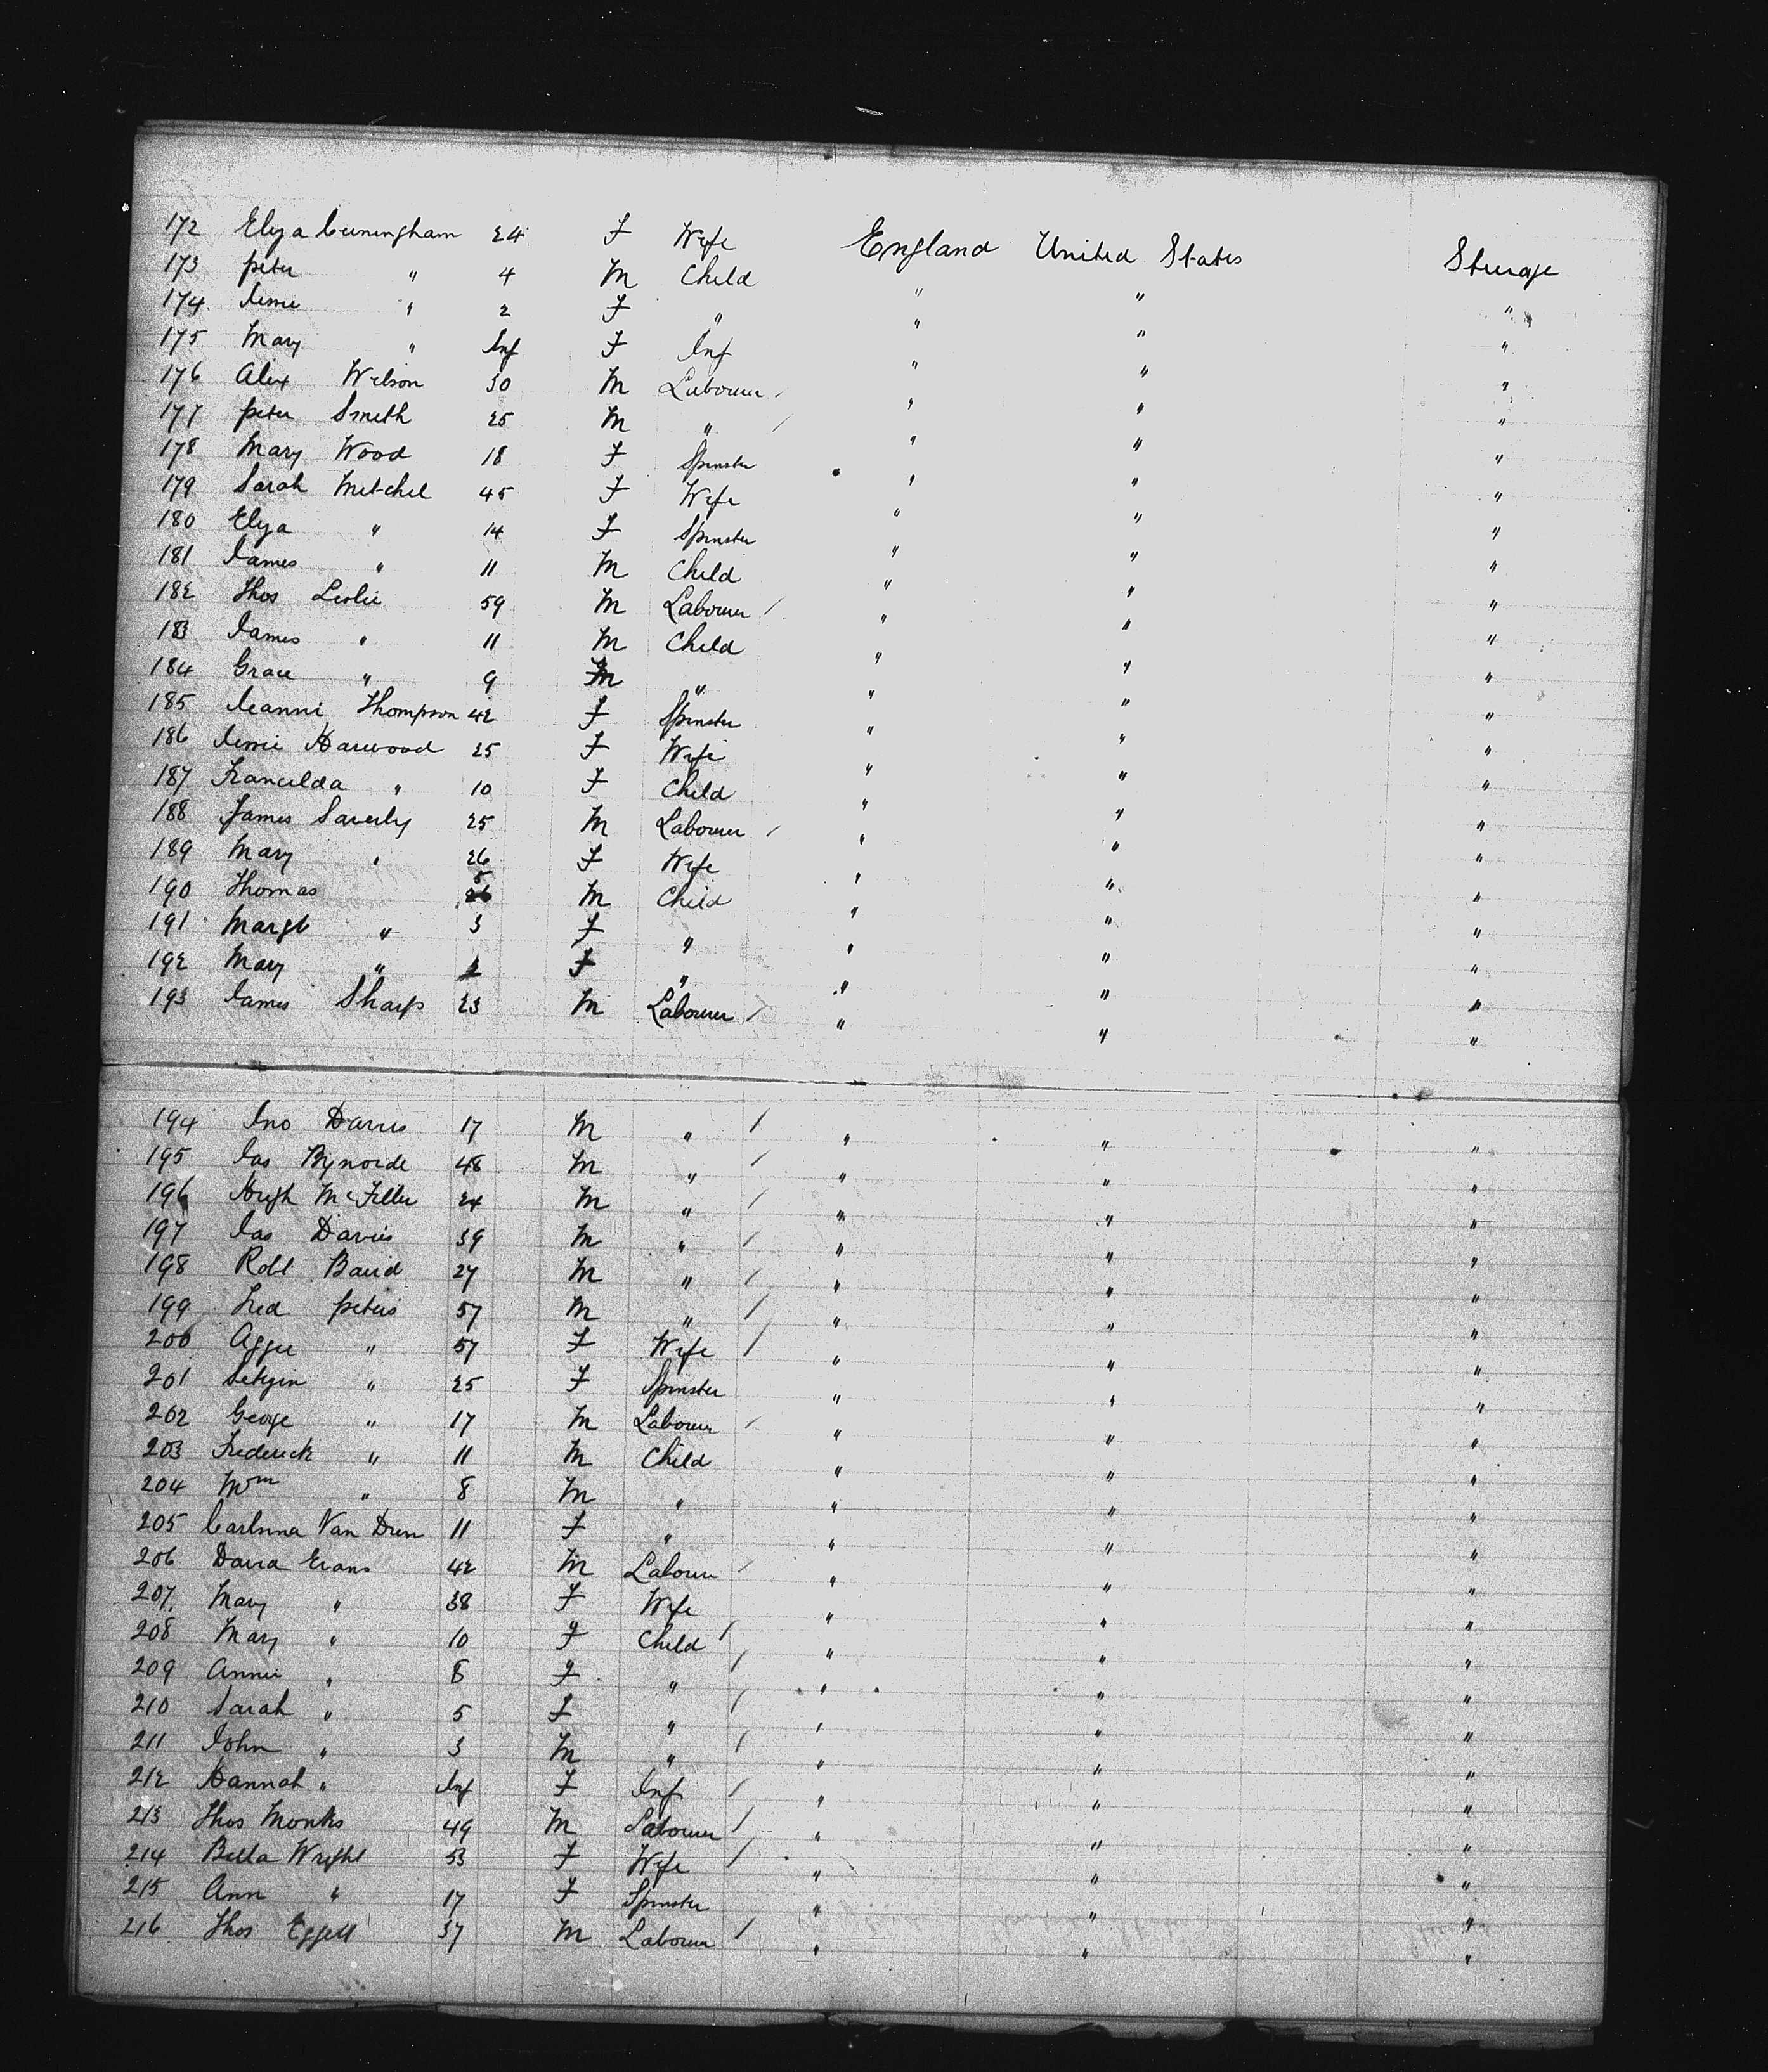 172 Eliza Cuningham 24 F Wife England United States Steerage
173 Peter " 4 M Child " " "
174 Jessie " 2 F " " " "
175 Mary " Inf F Inf " " "
176 Alex Wilson 30 M Labourer / " " "
177 Peter Smith 25 M " / " " "
178 Mary Wood 18 F Spinster " " "
179 Sarah Mitchel 45 F Wife " " "
180 Eliza " 14 F Spinster " " "
181 James " 11 M Child " " "
182 Thos Leslie 59 M Labourer / " " "
183 James " 11 M Child " " "
184 Grace " 9 " " " "
185 Jeannie Thompson 42 F Spinster " " "
186 Jessie Harwood 25 F Wife " " "
187 Francilda " 10 F Child " " "
188 James Saverly 25 M Labourer / " " "
189 Mary " 26 F Wife " " "
190 Thomas 5 M Child " " "
191 Margt " 3 F " " " "
192 Mary " F " " " "
193 James Sharp 23 M Labourer / " " "
194 Jno Davis 17 M " / " " "
195 Jas 48 M " / " " "
196 Hugh 24 M " / " " "
197 Jas Davies 39 M " / " " "
198 Robt Baird 27 M " / " " "
199 Fred Peters 57 M " / " " "
200 Aggie " 57 F Wife / " " "
201 " 25 F Spinster " " "
202 George " 17 M Labourer / " " "
203 Frederick " 11 M Child " " "
204 Wm " 8 M " " " "
205 Van 11 F " " " "
206 David Evans 42 M Labourer / " " "
207 Mary " 38 F Wife " " "
208 Mary " 10 F Child / " " "
209 Annie " 8 F " / " " "
210 Sarah " 5 F " / " " "
211 John " 3 M " / " " "
212 Hannah " Inf F Inf / " " "
213 Thos Monks 49 M Labourer / " " "
214 Bella Wright 53 F Wife / " " "
215 Ann " 17 F Spinster " " "
216 Thos Eggell 37 M Labourer / " " "